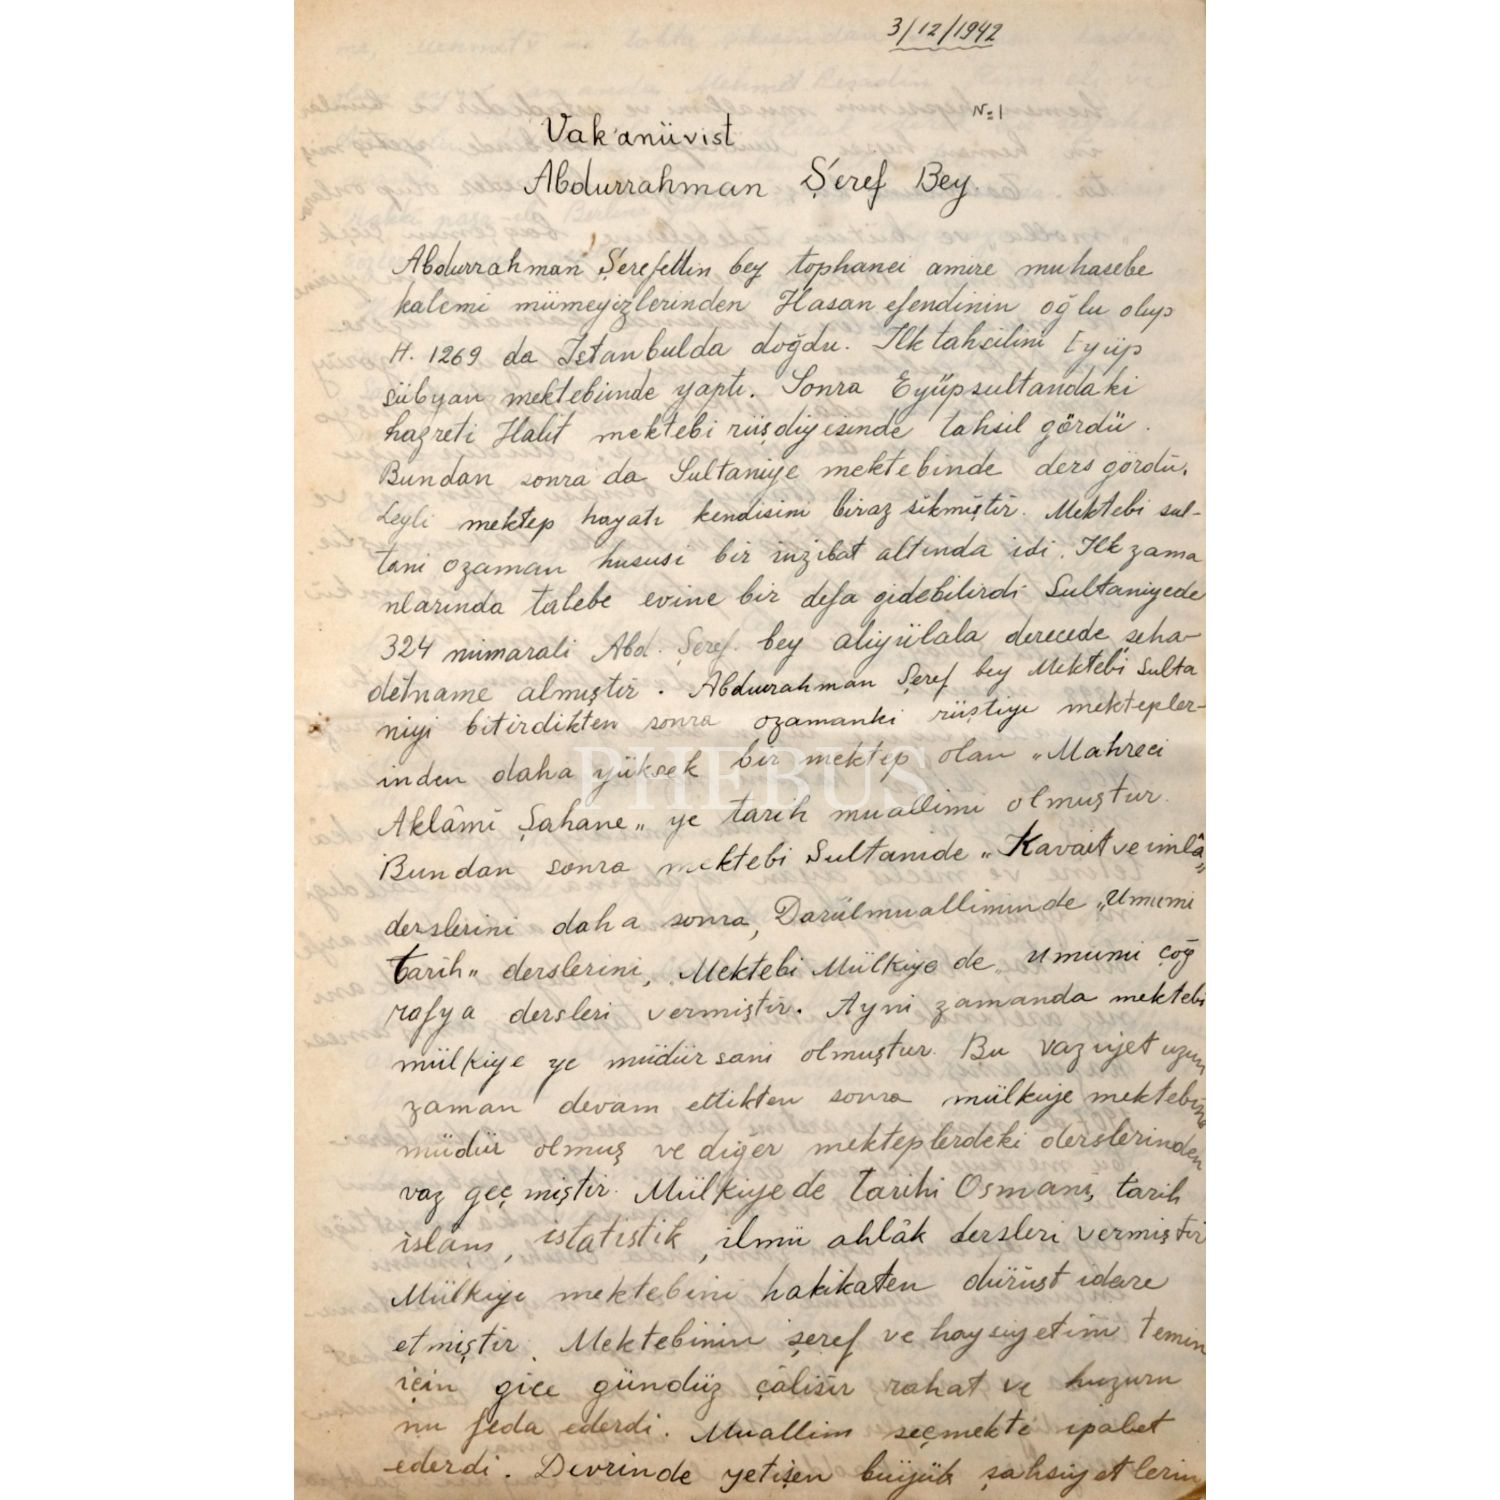 3/12/1942
N=1
Vak'anüvist
Abdurrahman Şeref Bey.
Abdurrahman Şerefettin bey tophanei amire muhasebe
kalemi mümeyizlerinden Hasan efendinin oğlu olup
H. 1269 da İstanbulda doğdu. İlk tahsilini Eyüp
sübyan mektebinde yaptı. Sonra Eyüpsultandaki
hazreti Halit mektebi rüşdiyesinde tahsil gördü.
Bundan sonra da Sultaniye mektebinde ders gördü.
Leyli mektep hayatı kendisini biraz sıkmıştır. Mektebi sul-
tani ozaman hususi bir inzibat altında idi. İlk zama
nlarında talebe evine bir defa gidebilirdi Sultaniyede
324 numaralı Abd. Şeref. bey aliyülala derecede şeha-
detname almıştır. Abdurrahman Şeref bey Mektebi Sulta
niyi bitirdikten sonra ozamanki rüştiye mektepler-
inden daha yüksek bir mektep olan "Mahreci
Aklâmi Şahane" ye tarih muallimi olmuştur.
Bundan sonra mektebi Sultanide "Kavait ve imlâ"
derslerini daha sonra, Darülmualliminde "Umumi
tarih" derslerini, Mektebi Mülkiye de umumi coğ
rafya dersleri vermiştir. Ayni zamanda mektebi
mülkiye ye müdür sani olmuştur. Bu vaziyet uzun
zaman devam ettikten sonra mülkiye mektebine
müdür olmuş ve diğer mekteplerdeki derslerinden
vaz geçmiştir. Mülkiyede tarihi Osmani, tarih
islâm, istatistik, ilmü ahlâk dersleri vermiştir
Mülkiye mektebini hakikaten dürüst idare
etmiştir. Mektebinin şeref ve haysiyetini temin
için gice gündüz çalışır rahat ve huzuru
nu feda ederdi. Muallim seçmekte ipabet
ederdi. Devrinde yetişen büyük şahsiyetlerin
PHEBUS